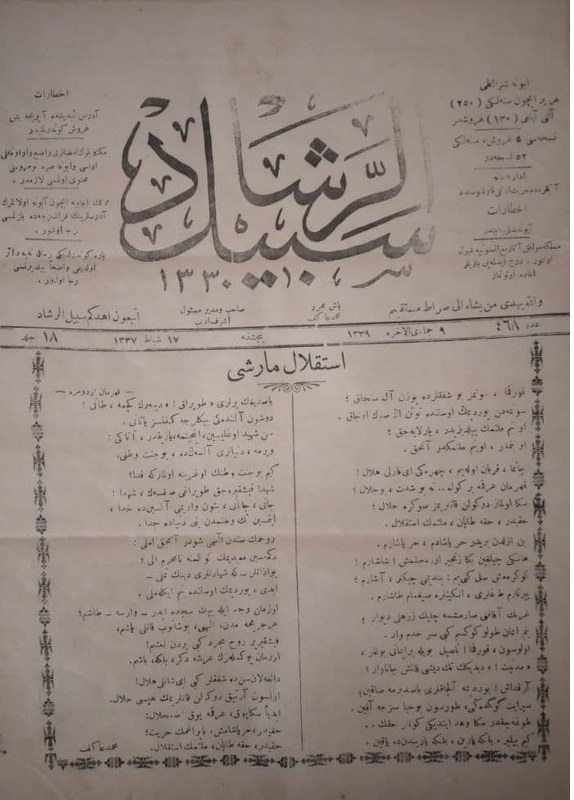 ابونه شرائطی
هر یر ایچون سنه‌لکی (۲۵۰)
آلتی آیلغی (۱۳۰) غروشدر
نسخه‌سی ۵ غروش، سنه‌لکی
۵۲ نسخه‌در
اخطارات
اخطارات
سبیل الرشاد
۱۳۳۰
والله یهدی من یشاء الی صراط مستقیم
باش محرر
محمد عاکف
صاحب و مدیر مسئول
اشرف ادیب
اتبعون اهدکم سبیل الرشاد
عدد ۴۶۸
۹ جمادی الآخره ۱۳۳۹
پنجشنبه
۱۷ شباط ۱۳۳۷
جلد ۱۸
استقلال مارشی
— قهرمان اردومزه —
قورقما ، سونمز بو شفقلرده یوزن آل سنجاق ؛
سونمه‌دن یوردیمك اوستنده توتن اڭ صوك اوجاق .
او بنم ملتمك ییلدیزیدر ، پارلایه‌جق ؛
او بنمدر ، او بنم ملتمکدر آنجق .
چاتما ، قربان اوله‌یم ، چهره‌کی ای نازلی هلال !
قهرمان عرقمه بر کول .. نه بو شدت ، بو جلال ؟
سکا اولماز دوکولن قانلریمز صوکره حلال ؛
حقیدر ، حقه طاپان ، ملتمك استقلال .
بن ازلدن بریدر حر یاشادم ، حر یاشارم .
هانکی چیلغین بکا زنجیر اوره‌جقمش ؟ شاشارم !
کوکره‌مش سل کبی‌یم ؛ بندیمی چیکنر ، آشارم ؛
ییرتارم طاغلری ، انکینلره صیغمام طاشارم .
غربك آفاقنی صارمشسه چلیك زرهلی دیوار ؛
بنم ایمان طولو کوکسم کبی سرحدم وار .
اولوسون ، قورقما ! ناصیل بویله بر ایمانی بوغار ،
« مدنیت ! » دیدیکك تك دیشی قالمش جاناوار ؟
آرقداش ! یوردیمه آلچاقلری اوغراتما صاقین ؛
سپر ایت کوکده‌کی ، طورسون بو حیاسزجه آقین .
طوغه‌جقدر سکا وعد ایتدیکی کونلر حقك ..
کیم بیلیر ، بلکه یارین ، بلکه یاریندن ده یاقین .
باصدیغك یرلری « طوپراق ! » دییه‌رك کچمه ، طانی !
دوشون آلتنده‌کی بیکلرجه کفنسز یاتانی .
سن شهید اوغلیسین ، اینجیتمه ، یازیقدر ، آتاکی ؛
ویرمه ، دنیالری آلسه‌ڭده ، بو جنت وطنی .
کیم بو جنت وطنك اوغرینه اولمازکه فدا ؟
شهدا فیشقیره‌جق طوپراغی صیقسه‌ڭ ، شهدا !
جانی ، جانانی ، بتون واریمی آلسین‌ده خدا ،
ایتمسین تك وطنمدن بنی دنیاده جدا .
روحمك سندن الهی شودر آنجق املی :
دکمه‌سین معبدیمك کوکسنه نامحرم الی ؛
بو اذانلر — که شهادتلری دینك تملی —
ابدی ، یوردیمك اوستنده بنم ایکله‌ملی .
او زمان وجد ایله بیك سجده ایدر — وارسه — طاشم ؛
هر جریحه‌مدن ، الهی ، بوشانوب قانلی یاشم ،
فیشقیریر روح مجرد کبی یردن نعشم !
او زمان یوکسله‌رك عرشه دکر ، بلکه ، باشم .
دالغه‌لان سن‌ده شفقلر کبی ای شانلی هلال !
اولسون آرتیق دوکولن قانلریمك هپسی حلال .
ابدیاً سکا یوق ، عرقمه یوق اضمحلال :
حقیدر ، حر یاشامش ، بایراغمك حریت ؛
حقیدر ، حقه طاپان ، ملتمك استقلال .
محمد عاکف